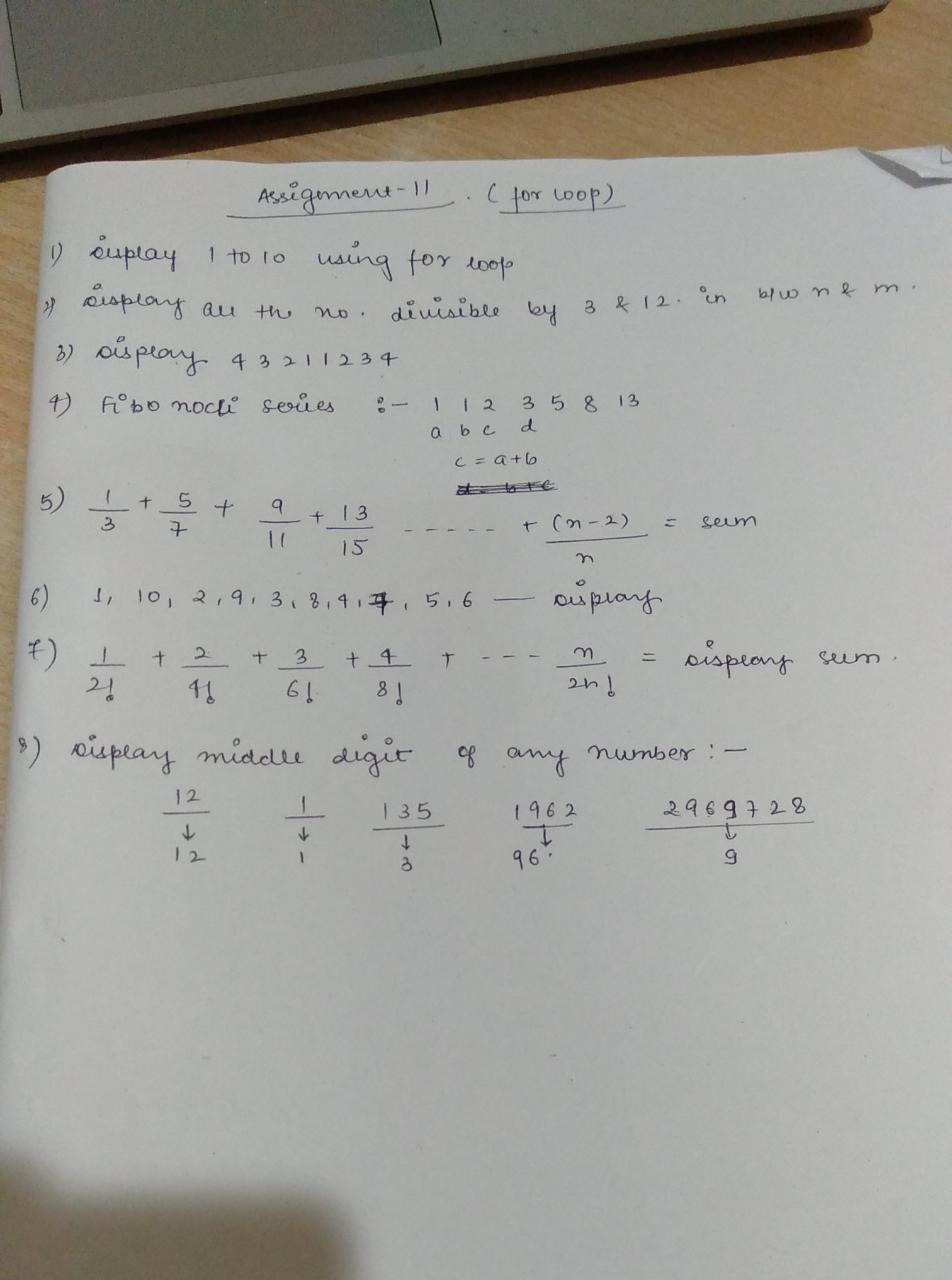 Assignment-11 . ( for loop)
1) Display 1 to 10 using for loop
2) Display all the no. divisible by 3 & 12. in b/w n & m.
3) Display 4 3 2 1 1 2 3 4
4) Fibonocci series :- 1 1 2 3 5 8 13
a b c d
c = a+b
d = b + c
5) 1/3 + 5/7 + 9/11 + 13/15 ----- + (n-2)/n = sum
6) 1, 10, 2, 9, 3, 8, 4, 7, 5, 6 — Display
7) 1/2! + 2/4! + 3/6! + 4/8! + --- n/2n! = Display sum.
8) Display middle digit of any number :-
12 1 135 1962 2969728
↓ ↓ ↓ ↓ ↓
12 1 3 96. 9